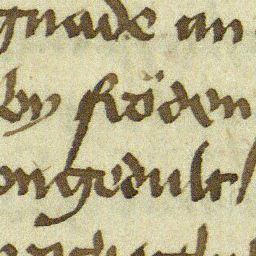 gnade an
by fröden
ongedult /